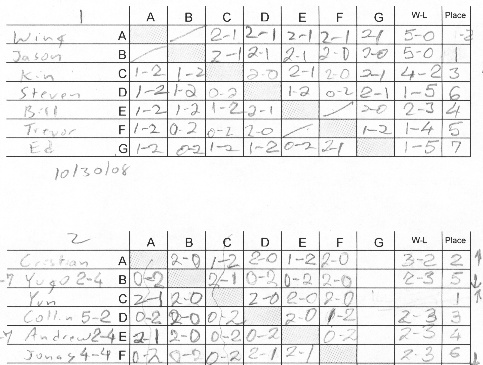 1 A B C D E F G W-L Place
Wing A 2-1 2-1 2-1 2-1 2-1 5-0
Jason B 2-1 2-1 2-1 2-0 2-0 5-0 1
Kin C 1-2 1-2 2-0 2-1 2-0 2-1 4-2 3
Steven D 1-2 1-2 0-2 1-2 0-2 2-1 1-5 6
Bill E 1-2 1-2 1-2 2-1 2-0 2-3 4
Trevor F 1-2 0-2 0-2 2-0 1-2 1-4 5
Ed G 1-2 0-2 1-2 1-2 0-2 2-1 1-5 7
10/30/08
2 A B C D E F G W-L Place
Cristan A 2-0 1-2 2-0 1-2 2-0 3-2 2 ↑
Yugo 2-4 B 0-2 2-1 0-2 0-2 2-0 2-3 5 ↓
Yun C 2-1 2-0 2-0 2-0 2-0 1 ↑
Collin 5-2 D 0-2 2-0 0-2 2-0 1-2 2-3 3
Andrew 2-4 E 2-1 2-0 0-2 0-2 0-2 2-3 4
Jonas 4-4 F 0-2 0-2 0-2 2-1 2-1 2-3 6 ↓